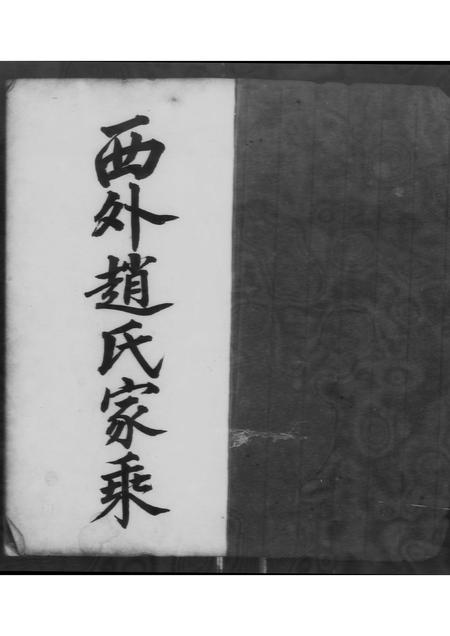 西外趙氏家乘